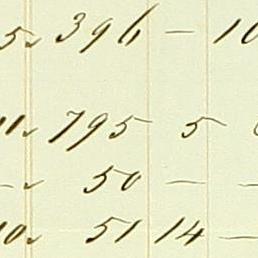 5 396 – 10
11 795 5
– 50 – –
10 51 14 –